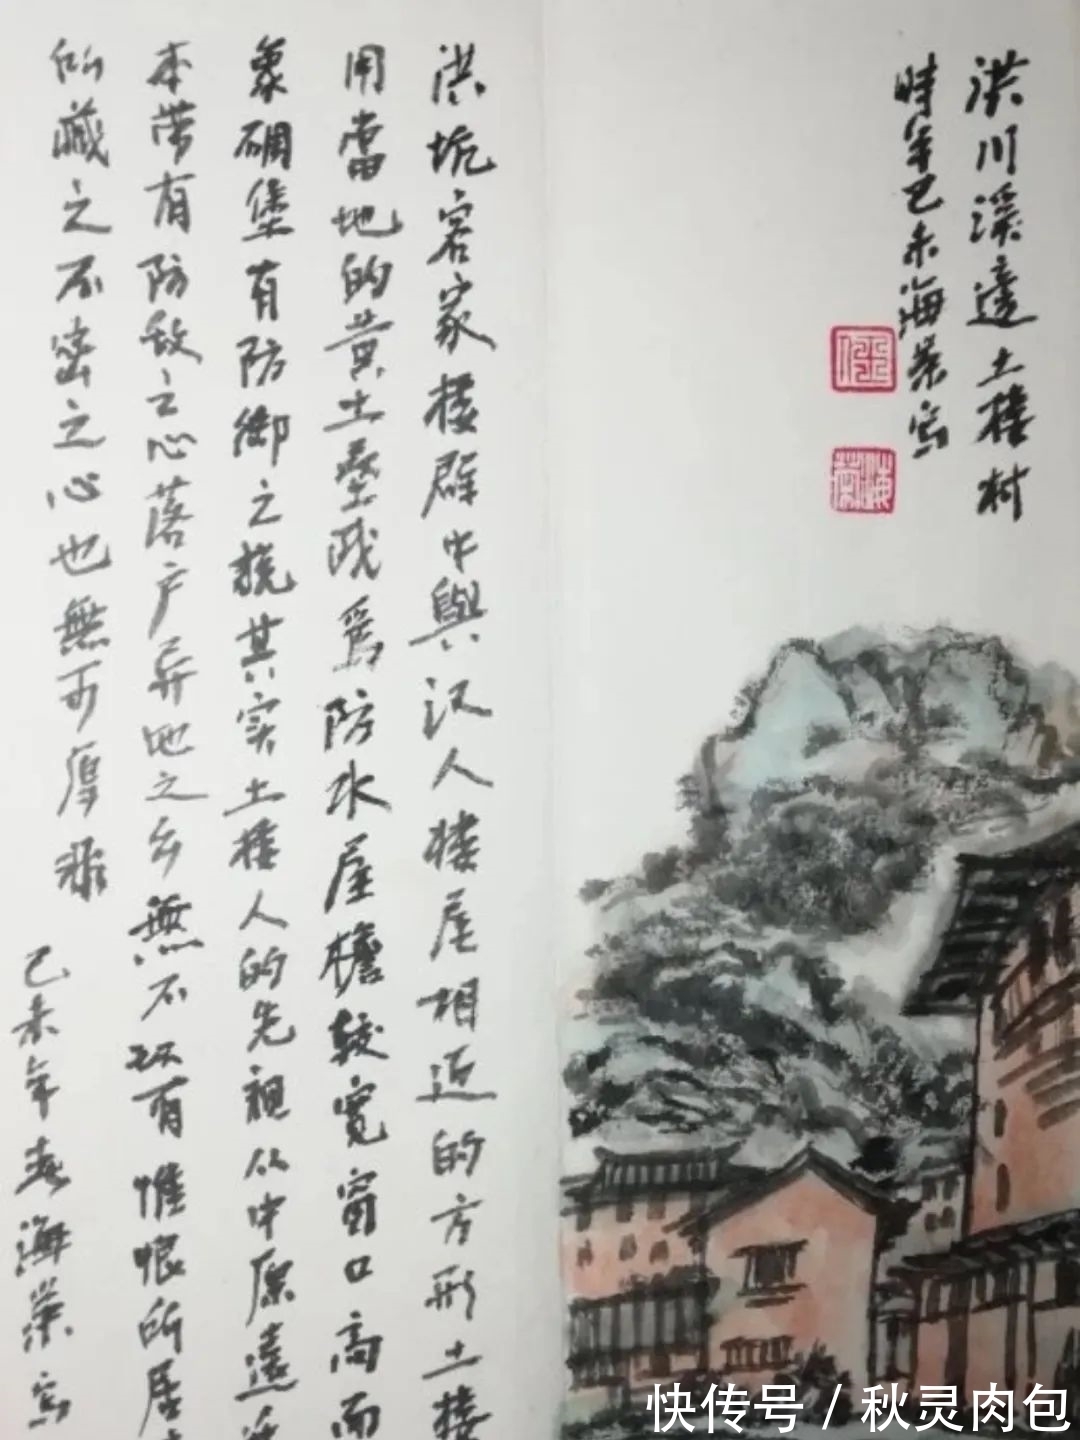 洪川溪邊土樓村
時年己未海荣寫
洪坑客家楼群中與汉人楼屋相近的方形土楼
用當地的黄土垒成爲防水屋檐較寛窗口高而
象碉堡有防御之 其实土楼人的先祖从中原遠
本带有防敌之心落户异地之乡無不 有惟恨所居
所藏之不密之心也無可厚非
己未年春海荣寫
海荣
快传号 / 秋灵肉包